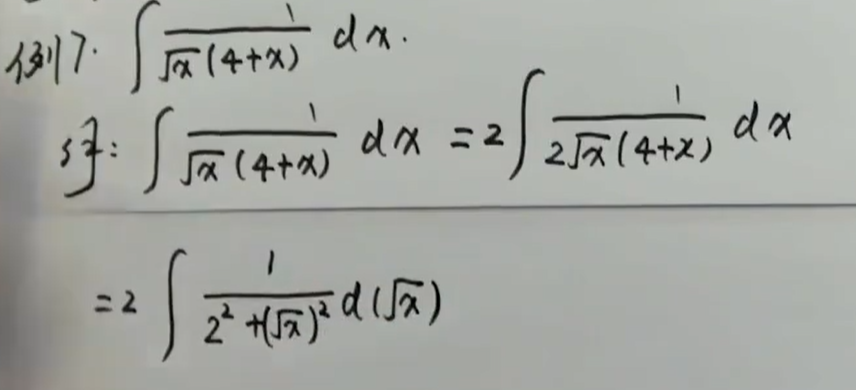 例7. ∫ 1/(√x(4+x)) dx.
解: ∫ 1/(√x(4+x)) dx = 2∫ 1/(2√x(4+x)) dx
= 2 ∫ 1/(2²+(√x)²) d(√x)